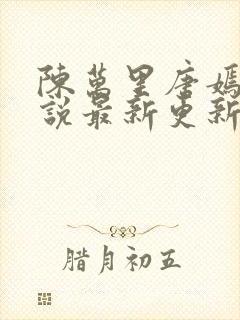 陳萬里唐嫣
說最新更新
腊月初五